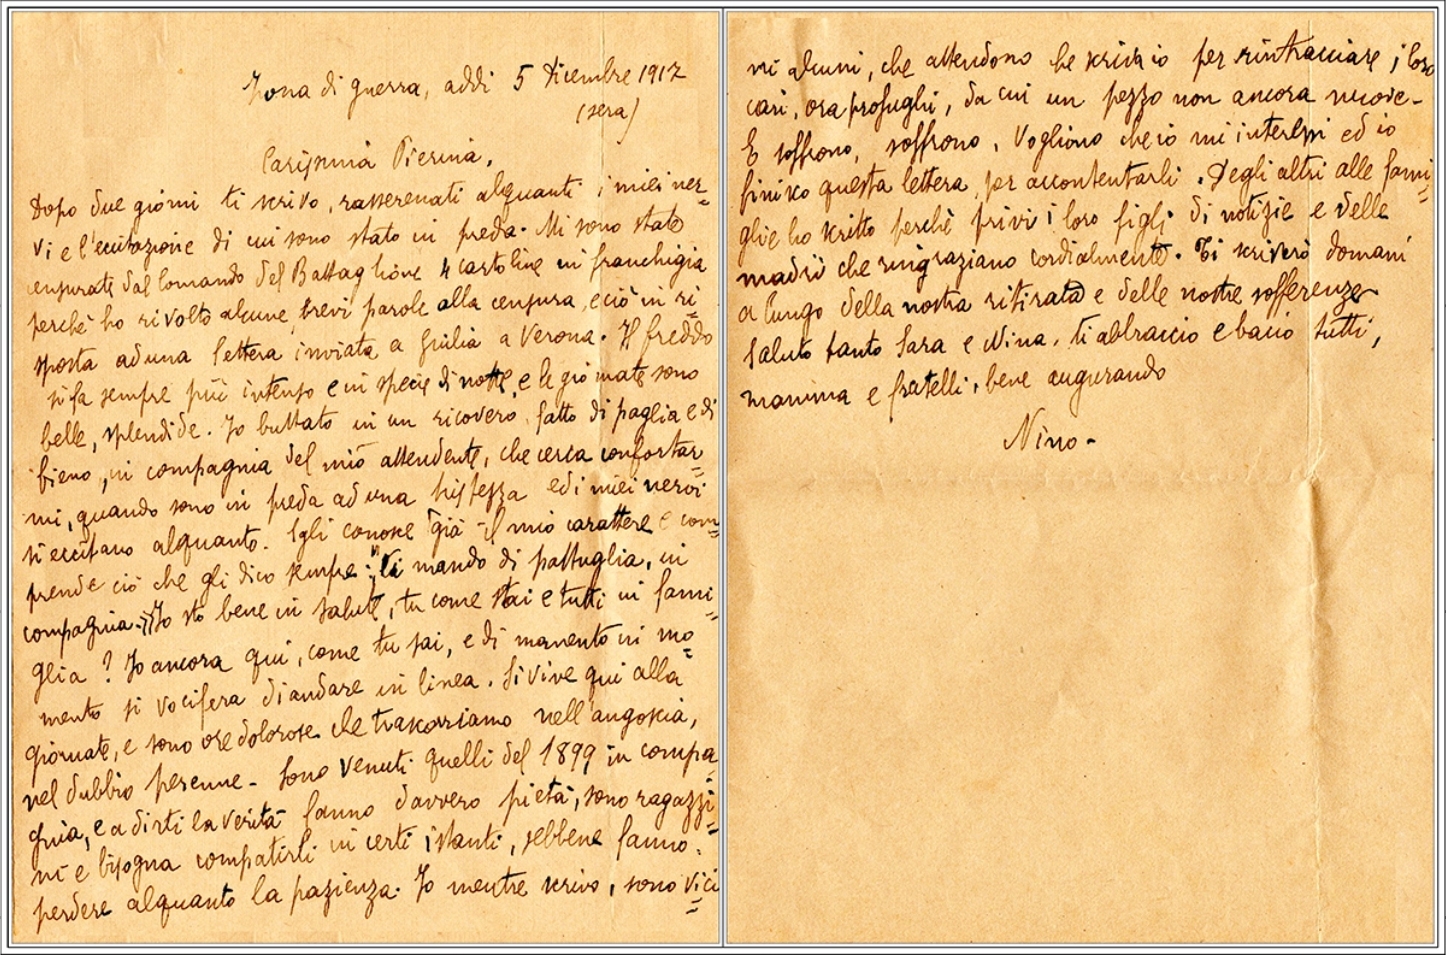 Zona di guerra, addì 5 Dicembre 1917
(sera)
Carissima Pierina,
Dopo due giorni ti scrivo, rasserenati alquanti i miei ner=
vi e l'eccitazione di cui sono stato in preda. Mi sono state
censurate dal Comando del Battaglione 4 cartoline in franchigia
perchè ho rivolto alcune brevi parole alla censura, e ciò in ri=
sposta ad una lettera inviata a Giulia a Verona. Il freddo
si fa sempre più intenso e in specie di notte, e le giornate sono
belle, splendide. Io buttato in un ricovero, fatto di paglia e di
fieno, in compagnia del mio attendente, che cerca confortar=
mi, quando sono in preda ad una tristezza ed i miei nervi
si eccitano alquanto. Egli conosce già il mio carattere e com=
prende ciò che gli dico sempre: "Ti mando di pattuglia, in
compagnia." Io sto bene in salute, tu come stai e tutti in fami=
glia? Io ancora qui, come tu sai, e di momento in mo=
mento si vocifera di andare in linea. Si vive qui alla
giornate, e sono ore dolorose che trascorriamo nell'angoscia,
nel dubbio perenne - Sono venuti quelli del 1899 in compa=
gnia, e a dirti la verità fanno davvero pietà, sono ragazzi=
ni e bisogna compatirli in certi istanti, sebbene fanno
perdere alquanto la pazienza. Io mentre scrivo, sono vici=
ni alcuni, che attendono che scriva io per rintracciare i loro
cari, ora profughi, da cui un pezzo non ancora nuove -
E soffrono, soffrono. Vogliono che io mi interessi ed io
finisco questa lettera per accontentarli. Degli altri alle fami=
glie ho scritto perchè privi i loro figli di notizie e delle
madri che ringraziano cordialmente. Ti scriverò domani
a lungo della nostra ritirata e delle nostre sofferenze
Saluto tanto Sara e Nina. Ti abbraccio e bacio tutti,
mamma e fratelli, bene augurando
Nino -